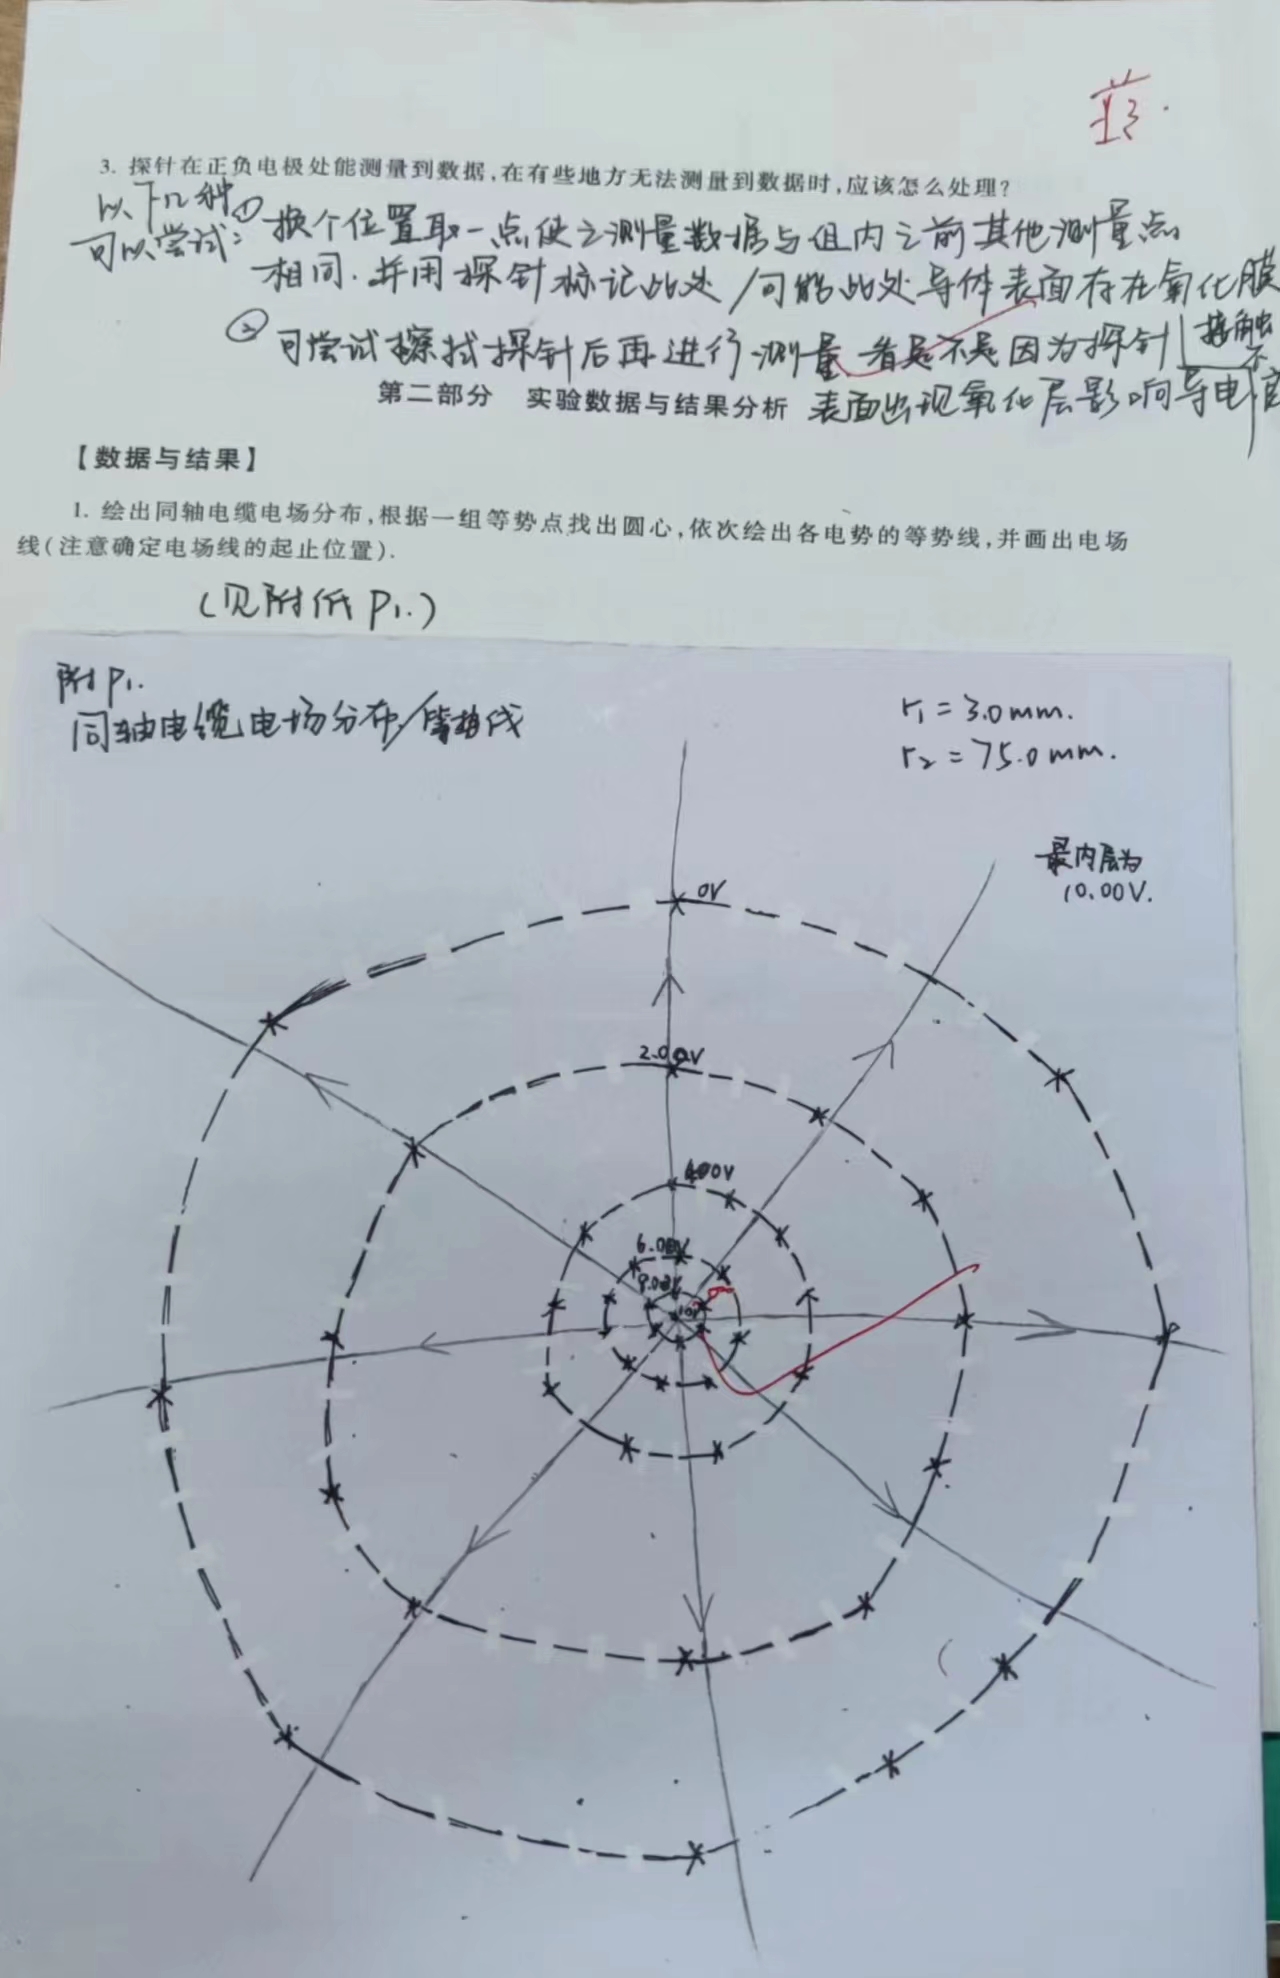 3. 探针在正负电极处能测量到数据,在有些地方无法测量到数据时,应该怎么处理?
以下几种
可以尝试:
① 换个位置取一点使之测量数据与组内之前其他测量点
相同.并用探针标记此处/可能此处导体表面存在氧化膜
② 可尝试擦拭探针后再进行测量.看是不是因为探针 接触不
第二部分 实验数据与结果分析
表面出现氧化层影响导电
【数据与结果】
1. 绘出同轴电缆电场分布,根据一组等势点找出圆心,依次绘出各电势的等势线,并画出电场
线(注意确定电场线的起止位置).
(见附纸P1.)
附P1.
同轴电缆电场分布/等势线
r1=3.0mm.
r2=75.0mm.
最内层为
10.00V.
0V
2.00V
4.00V
6.00V